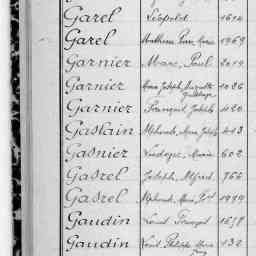 Garel Léopold 1614
Garel Matthieu Pierre Marie 1969
Garnier Marc, Paul 2014
Garnier Joseph, Auguste 1026
Garnier François, Joseph 1120
Gaslain Alphonse, Marie, Joseph 443
Gasnier Marie 602
Gasrel Joseph, Alfred 766
Gasrel Alphonse, Marie, Jph 1994
Gaudin Louis François 1658
Gaudin Louis, Philippe, Marie 132